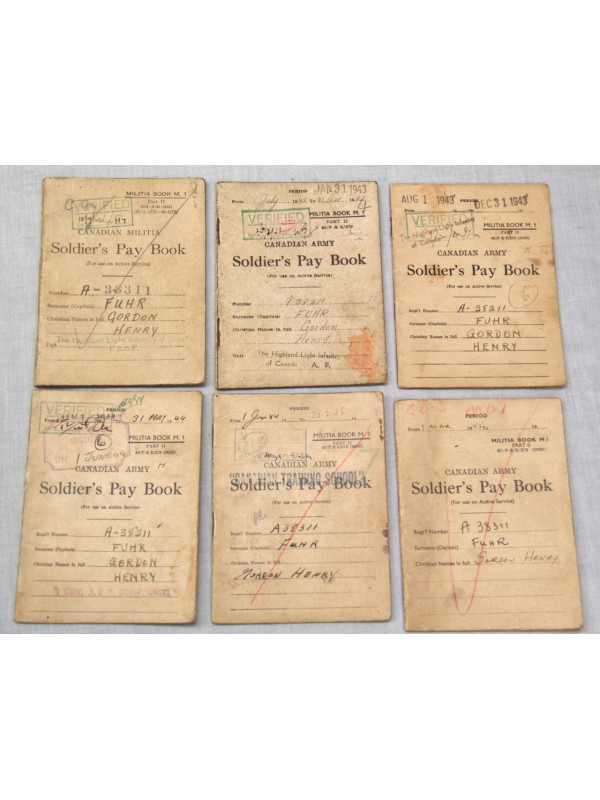 MILITIA BOOK M. 1
Part II
VERIFIED
CANADIAN MILITIA
Soldier's Pay Book
(For use on Active Service)
Number A-38311
Surname (Capitals) FUHR
Christian Names in full GORDON
HENRY
The Highland Light Infantry
Unit
PERIOD JAN 31 1943
From July
VERIFIED
MILITIA BOOK M. 1
PART II
CANADIAN ARMY
Soldier's Pay Book
(For use on Active Service)
Number 38311
Surname (Capitals) FUHR
Christian Names in full Gordon
Henry
Unit The Highland Light Infantry
of Canada A. F.
AUG 1 1943 PERIOD DEC 31 1943
From
VERIFIED
MILITIA BOOK M. 1
PART II
The Highland Light Infantry
of Canada
CANADIAN ARMY
Soldier's Pay Book
(For use on Active Service)
6
Regt'l Number A-38311
Surname (Capitals) FUHR
Christian Names in full GORDON
HENRY
PERIOD
VERIFIED
From 31 MAY 44
MILITIA BOOK M. 1
PART II
6
ON 1 JUNE 44
CANADIAN ARMY
H
Soldier's Pay Book
(For use on Active Service)
Regt'l Number A-38311
Surname (Capitals) FUHR
Christian Names in full GORDON
HENRY
PERIOD
From 1 Jun 44
MILITIA BOOK M. 1
PART II
CANADIAN ARMY
"CANADIAN TRAINING SCHOOL"
Soldier's Pay Book
(For use on Active Service)
Regt'l Number A38311
Surname (Capitals) FUHR
Christian Names in full GORDON HENRY
PERIOD
From 1 MAR 19
MILITIA BOOK M. 1
PART II
CANADIAN ARMY
Soldier's Pay Book
(For use on Active Service)
Regt'l Number A 38311
Surname (Capitals) FUHR
Christian Names in full GORDON HENRY